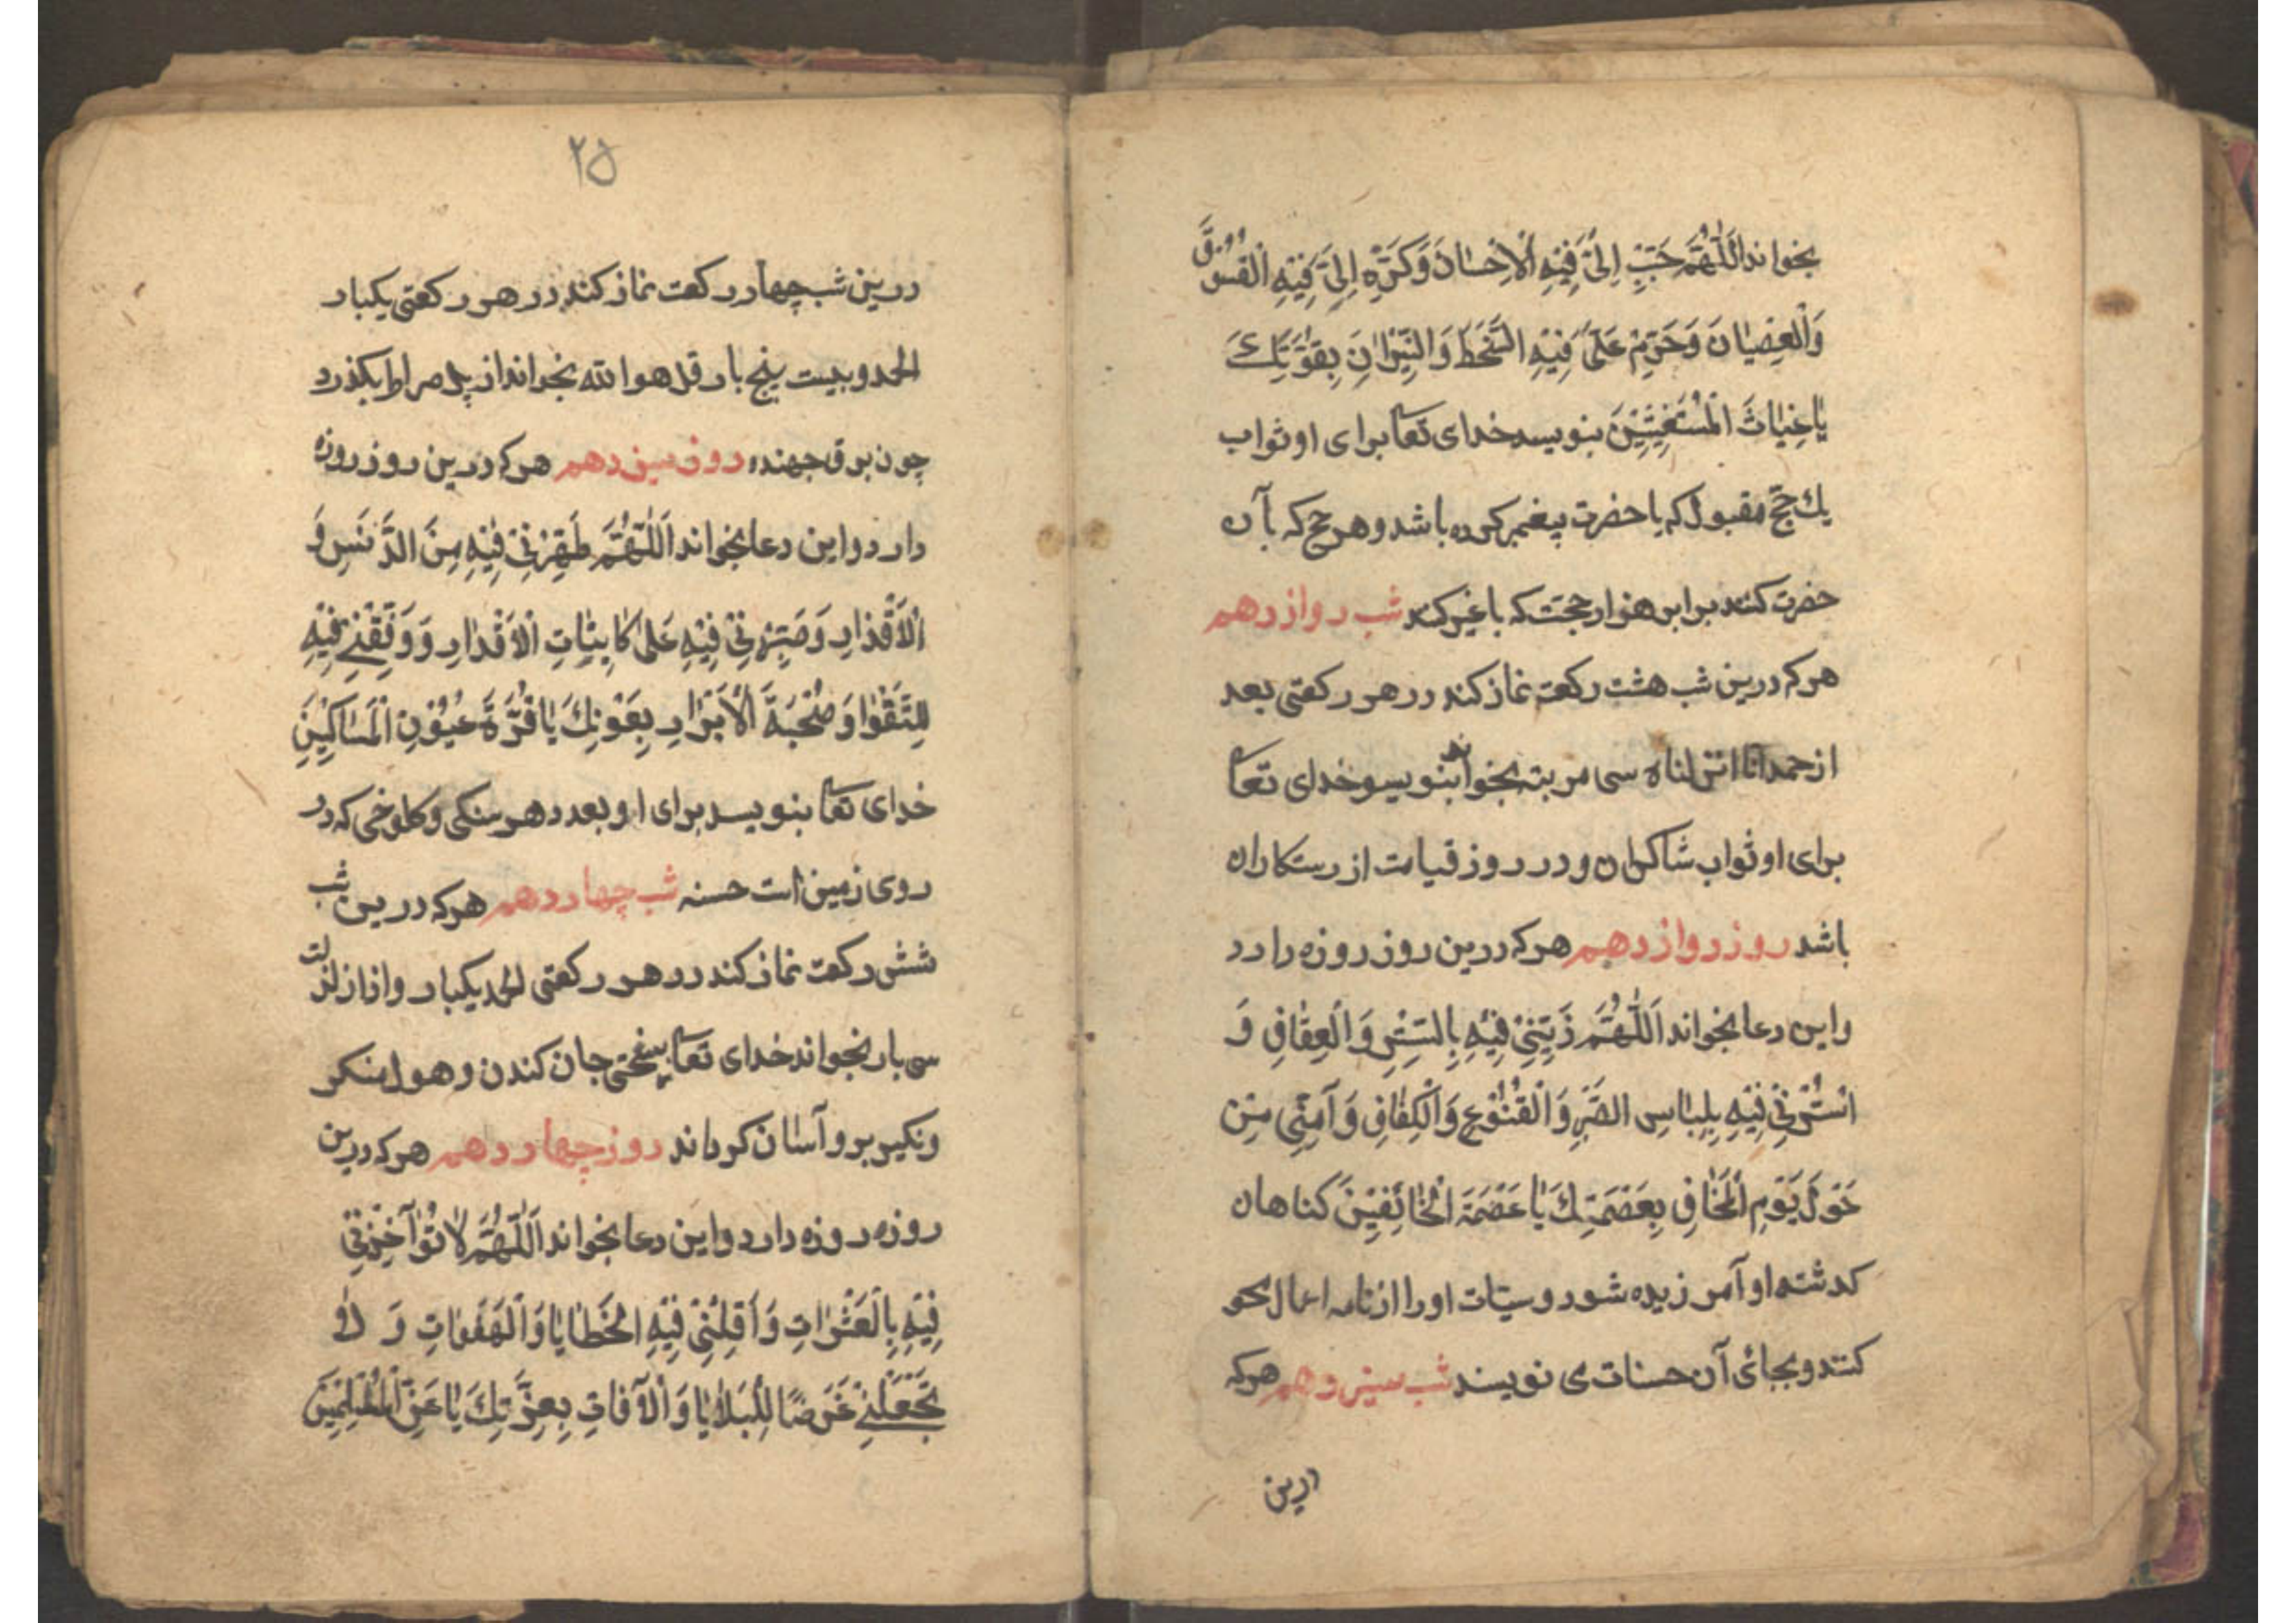 بخواند اَللّٰهُمَّ حَبِّبْ اِلَیَّ فِیْهِ الْاِحْسٰانَ وَ کَرِّهْ اِلَیَّ فِیْهِ الْفُسُوْقَ
وَالْعِصْیٰانَ وَ حَرِّمْ عَلَیَّ فِیْهِ السَّخَطَ وَ النِّیْرٰانَ بِقُوَّتِكَ
یٰا غِیٰاثَ الْمُسْتَغِیْثِیْنَ بنویسد خدای تعا برای او ثواب
یك حجّ مقبول که با حضرت پیغمبر کرده باشد و هر حج که با آن
حضرت کنند برابر هزار حجّت که با غیر کند شب دوازدهم
هر که درین شب هشت رکعت نماز کند در هر رکعتی بعد
از حمد انا انزلناه سی مرتبه بخواند بنویسد خدای تعا
برای او ثواب شاکران و در روز قیامت از رستکاران
باشد روز دوازدهم هر که درین روز روزه دارد
و این دعا بخواند اَللّٰهُمَّ زَیِّنِّیْ فِیْهِ بِالسِّتْرِ وَالْعِفٰافِ وَ
اسْتُرْنِیْ فِیْهِ بِلِبٰاسِ الصَّبْرِ وَ الْقُنُوْعِ وَالْکِفٰافِ وَ آمِنِّی مِنْ
حَوْلَ یَوْمِ الْمَخٰافِ بِعَصْمَتِكَ یٰا عَصْمَةَ الْخٰائِفِیْنَ کناهان
کدشته او آمرزیده شود و سیّات او را از نامه اعمال محو
کنند و بجائ آن حسنات ی نویسند شب سیزدهم هر که
درین
۲۵
درین شب چهار رکعت نماز کند در هر رکعتی یکبار
الحمد و بیست پنج بار قل هو الله بخواند از پل صراط بکذرد
چون برق جهنده روز سیزدهم هر که درین روز روزه
دارد و این دعا بخواند اَللّٰهُمَّ طَهِّرْنِیْ فِیْهِ مِنَ الدَّنَسِ وَ
الْاَقْذٰارِ وَ صَبِّرْنِیْ فِیْهِ عَلیٰ کٰایِنٰاتِ الْاَقْدٰارِ وَ وَفِّقْنِیْ فِیْهِ
لِلتَّقْوٰا وَ صُحْبَةَ الْاَبْرٰارِ بِعَوْنِكَ یٰا قُرَّةَ عُیُوْنِ الْمَسٰاکِیْنَ
خدای تعا بنویسد برای او بعدد هر سنکی و کلوخی که در
روی زمین است حسنه شب چهاردهم هر که درین شب
شش رکعت نماز کند در هر رکعتی الحمد یکبار و اذا زلزلت
سی بار بخواند خدای تعا سختی جان کندن و هول منکر
و نکیر برو آسان کرداند روز چهاردهم هر که درین
روزه روزه دارد و این دعا بخواند اَللّٰهُمَّ لٰا تُؤٰاخِذْنِیْ
فِیْهِ بِالْعَثَرٰاتِ وَ اَقِلْنِیْ فِیْهِ الْخَطٰایٰا وَ الْهَفَوٰاتِ وَ لٰا
تَجْعَلْنِیْ غَرَضًا لِلْبَلٰایٰا وَ الْآفٰاتِ بِعِزَّتِكَ یٰا عَزَّ الْمُسْلِمِیْنَ